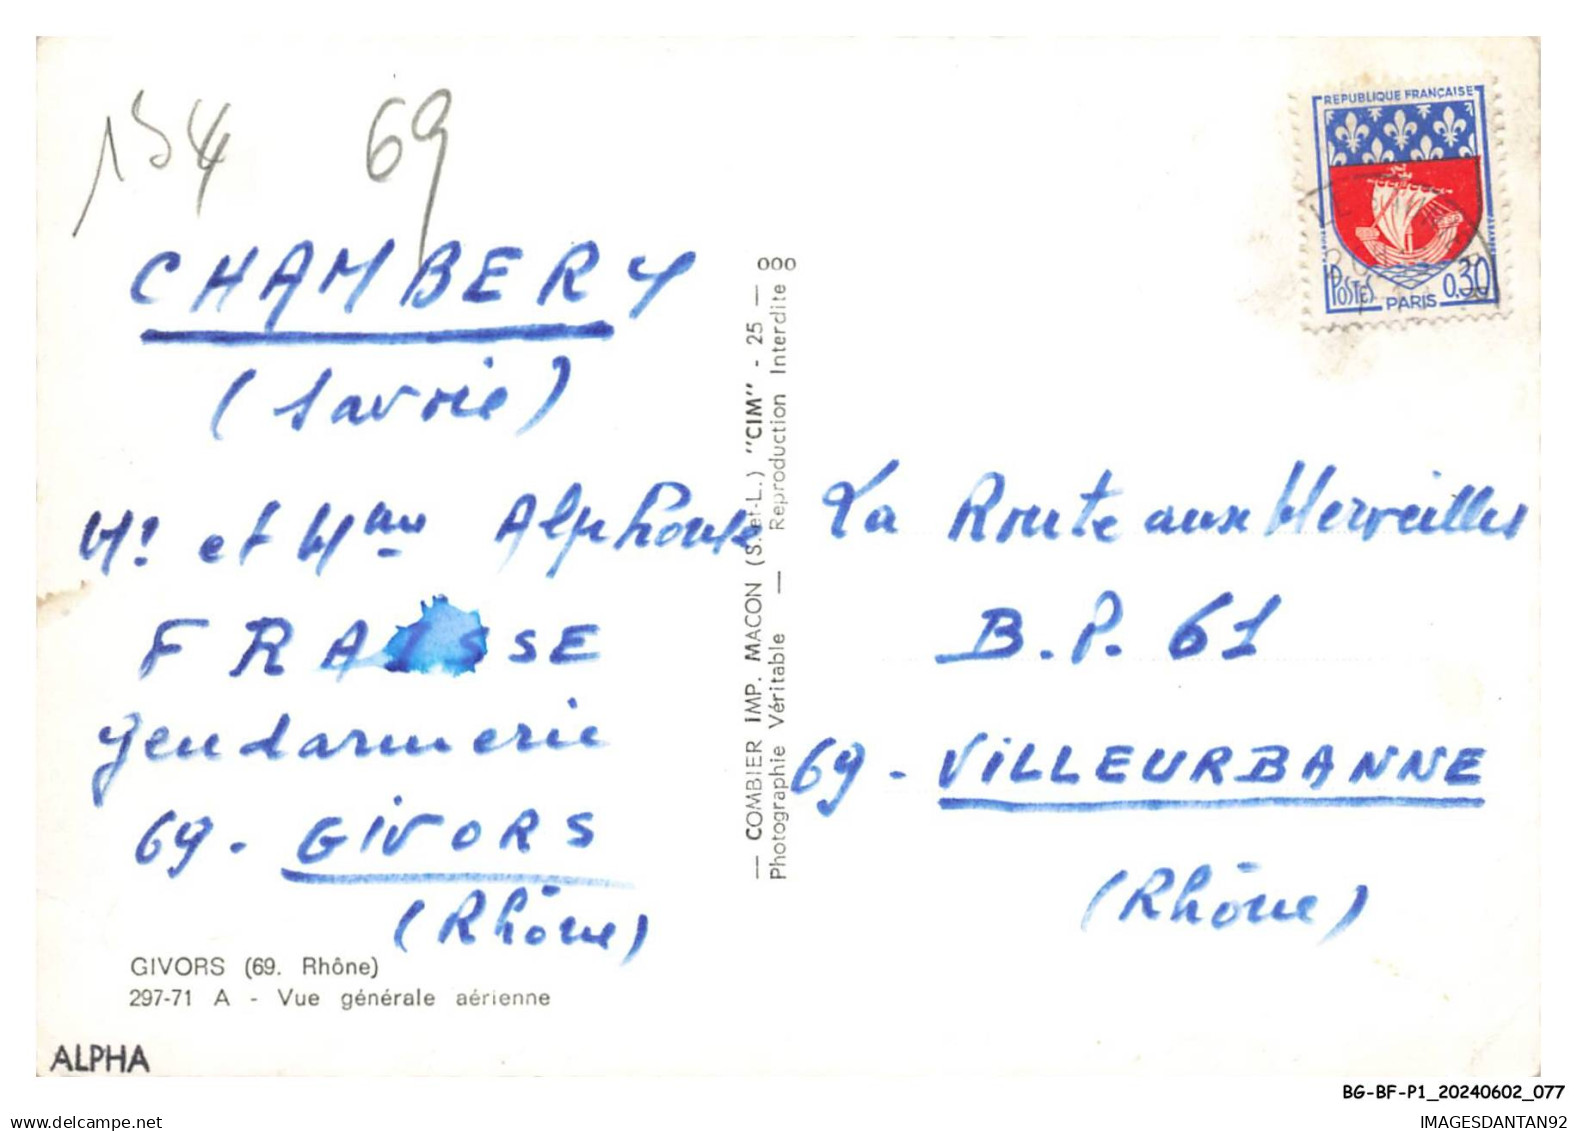 154 69
CHAMBERY
(Savoie)
Mr et Mme Alphonse
FRAISSE
Gendarmerie
69. GIVORS
(Rhône)
GIVORS (69. Rhône)
297-71 A - Vue générale aérienne
ALPHA
— COMBIER IMP. MACON (S.-et-L.) "CIM" - 25 — 000
Photographie Véritable — Reproduction Interdite
REPUBLIQUE FRANÇAISE
POSTES PARIS 0,30
La Route aux Merveilles
B.P. 61
69 - VILLEURBANNE
(Rhône)
BG-BF-P1_20240602_077
IMAGESDANTAN92